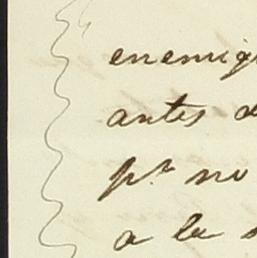 enemig
antes d
pr. no
a la